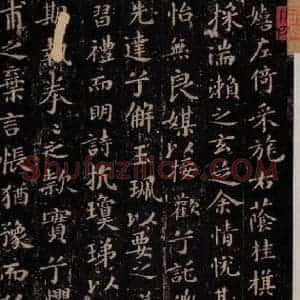 嬉左倚采旄右蔭桂旗
採湍瀨之玄芝余情悅其
怡無良媒以歡兮託
先達兮解玉珮以要之
習禮而明詩抗瓊珶以
期執拳々之款實兮懼
甫之棄言悵猶豫而